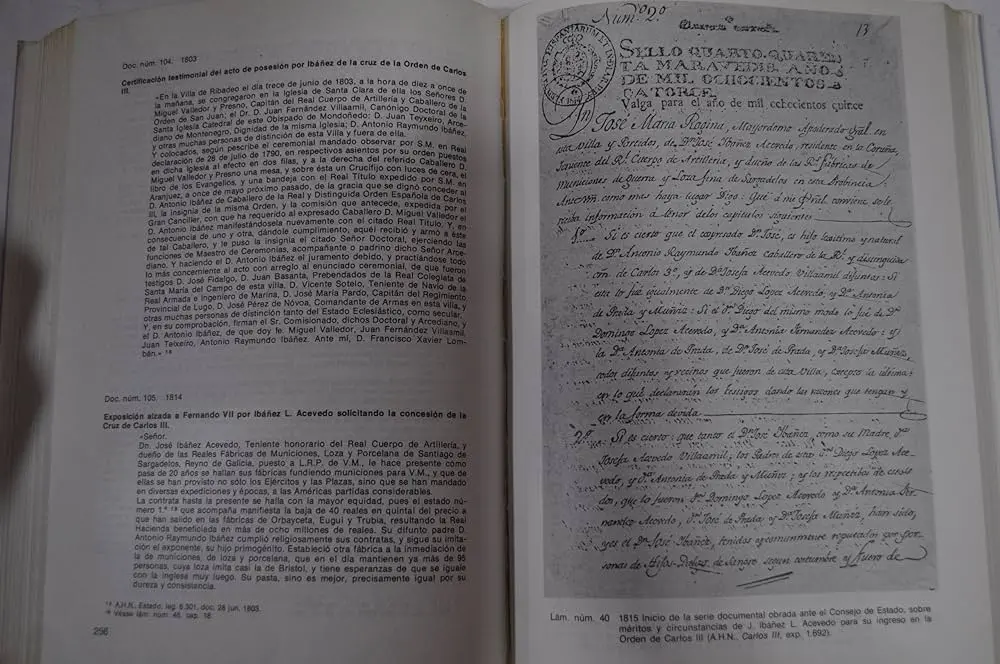 Doc. núm. 104. 1803
Certificación testimonial del acto de posesión por Ibáñez de la cruz de la Orden de Carlos
III.
«En la Villa de Ribadeo el día trece de junio de 1803, a la hora de diez a once de
la mañana, se congregaron en la Iglesia de Santa Clara de ella los Señores D.
Miguel Valledor y Presno, Capitán del Real Cuerpo de Artillería y Caballero de la
Orden de San Juan; el Dr. D. Juan Fernández Villaamil, Canónigo Doctoral de la
Santa Iglesia Catedral de este Obispado de Mondoñedo; D. Juan Teyxeiro, Arce-
diano de Montenegro, Dignidad de la misma Iglesia; D. Antonio Raymundo Ibáñez,
y otras muchas personas de distinción de esta Villa y fuera de ella.
Y colocados, según pescribe el ceremonial mandado observar por S.M. en Real
declaración de 28 de julio de 1790, en respectivos asientos por su orden puestos
en dicha Iglesia al efecto en dos filas, y a la derecha del referido Caballero D.
Miguel Valledor y Presno una mesa, y sobre ésta un Crucifijo con luces de cera, el
libro de los Evangelios, y una bandeja con el Real Título expedido por S.M. en
Aranjuez, a once de mayo próximo pasado, de la gracia que se dignó conceder al
D. Antonio Ibáñez de Caballero de la Real y Distinguida Orden Española de Carlos
III, la insignia de la misma Orden, y la comisión que antecede, expedida por el
Gran Canciller, con que ha requerido al expresado Caballero D. Miguel Valledor el
D. Antonio Ibáñez manifestándosela nuevamente con el citado Real Título. Y, en
consecuencia de uno y otra, dándole cumplimiento, aquél recibió y armó a éste
de tal Caballero, y le puso la insignia el citado Señor Doctoral, ejerciendo las
funciones de Maestro de Ceremonias, acompañante o padrino dicho Señor Arce-
diano. Y haciendo el D. Antonio Ibáñez el juramento debido, y practiándose todo
lo más concerniente al acto con arreglo al enunciado ceremonial, de que fueron
testigos D. José Fidalgo, D. Juan Basanta, Prebendados de la Real Colegiata de
Santa María del Campo de esta villa, D. Vicente Sotelo, Teniente de Navío de la
Real Armada e Ingeniero de Marina, D. José María Pardo, Capitán del Regimiento
Provincial de Lugo, D. José Pérez de Nóvoa, Comandante de Armas en esta villa, y
otras muchas personas de distinción tanto del Estado Eclesiástico, como secular.
Y, en su comprobación, firman el Sr. Comisionado, dichos Doctoral y Arcediano, y
el D. Antonio Ibáñez, de que doy fe. Miguel Valledor, Juan Fernández Villasmil,
Juan Teixeiro, Antonio Raymundo Ibáñez. Ante mí, D. Francisco Xavier Lom-
bán.»
Doc. núm. 105. 1814
Exposición alzada a Fernando VII por Ibáñez L. Acevedo solicitando la concesión de la
Cruz de Carlos III.
«Señor.
Dn. José Ibáñez Acevedo, Teniente honorario del Real Cuerpo de Artillería, y
dueño de las Reales Fábricas de Municiones, Loza y Porcelana de Santiago de
Sargadelos, Reyno de Galicia, puesto a L.R.P. de V.M., le hace presente como
pasa de 20 años se hallan sus fábricas fundiendo municiones para V.M., y que de
ellas se han provisto no sólo los Ejércitos y las Plazas, sino que se han mandado
en diversas expediciones y épocas, a las Américas partidas considerables.
La contrata hasta la presente se halla con la mayor equidad, pues el estado nú-
mero 1.º que acompaña manifiesta la baja de 40 reales en quintal del precio a
que han salido en las fábricas de Orbayceta, Eugui y Trubia, resultando la Real
Hacienda beneficiada en más de ocho millones de reales. Su difunto padre D.
Antonio Raymundo Ibáñez cumplió religiosamente sus contratas, y sigue su imita-
ción el exponente, su hijo primogénito. Estableció otra fábrica a la inmediación de
la de municiones, de loza y porcelana, que en el día mantienen ya más de 95
personas, cuya loza imita casi la de Bristol, y tiene esperanzas de que se iguale
con la inglesa muy luego. Su pasta, sino es mejor, precisamente igual por su
dureza y consistencia.
A.H.N., Estado, leg. 6.301, doc. 28 jun. 1803.
Véase lám. núm. 46, sep. 18.
256
Num.º 2.º
13
SELLO QUARTO, QUAREN
TA MARAVEDIS, AÑO
DE MIL OCHOCIENTOS
CATORCE.
Valga para el año de mil ochocientos quince
José Maria Rogina, Mayordomo Apoderado Gral. en
esta Villa y Partidos, de Dn. José Ibañez Acevedo, residente en la Coruña,
Teniente del Rl. Cuerpo de Artilleria, y dueño de las Rs. Fabricas de
Municiones de Guerra y Loza fina de Sargadelos en esta Provincia:
Ante vm. como mas haya lugar Digo: Que á mi Pral. conviene se le
reciba informacion á tenor de los capitulos siguientes
1.º Si es cierto que el expresado Dn. José, es hijo legitimo y natural
de Dn. Antonio Raymundo Ibañez caballero de la Rl. y distinguida
orn. de Carlos 3.º, y de Dª Josefa Acevedo Villaamil difuntos: Si
esta lo fue igualmente de Dn. Diego Lopez Acevedo, y Dª Antonia
de Prada, y Muñiz: Si el Dn. Diego del mismo modo lo fué de Dn.
Domingo Lopez Acevedo, y Dª Antonia Fernandez Acevedo: y si
la Dª Antonia de Prada, de Dn. José de Prada, y Dª Josefa Muñiz,
todos difuntos y vecinos que fueron de esta Villa, excepto la ultima:
en lo qué declararán los testigos dando las razones que tengan y
en la forma devida.
2.º Si es cierto: que tanto el Dn. José Ibañez, como su Madre, Dª
Josefa Acevedo Villaamil, los Padres de esta Dn. Diego Lopez Ace-
vedo, y Dª Antonia de Prada y Muñiz; y los respectibos de estos
dos, que lo fueron Dn. Domingo Lopez Acevedo y Dª Antonia Fer-
nandez Acevedo, Dn. José de Prada, y Dª Josefa Muñiz, han sido,
y es el Dn. José Ibañez, tenidos y comunmente reputados por per-
sonas de Hijos-Dalgo, de sangre segun costumbre y fuero de
Lám. núm. 40 1815 Inicio de la serie documental obrada ante el Consejo de Estado, sobre
méritos y circunstancias de J. Ibáñez L. Acevedo para su ingreso en la
Orden de Carlos III (A.H.N., Carlos III, exp. 1.692).